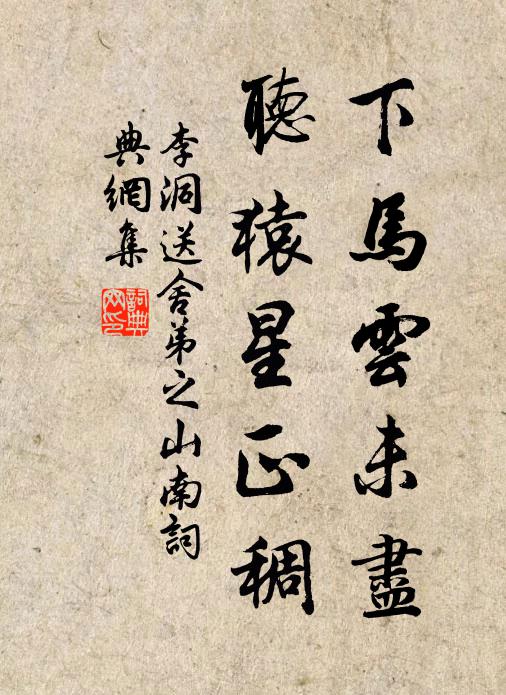 下馬雲未盡
聽猿星正稠
李洞送舍弟之山南詞
典網集
詞典網印